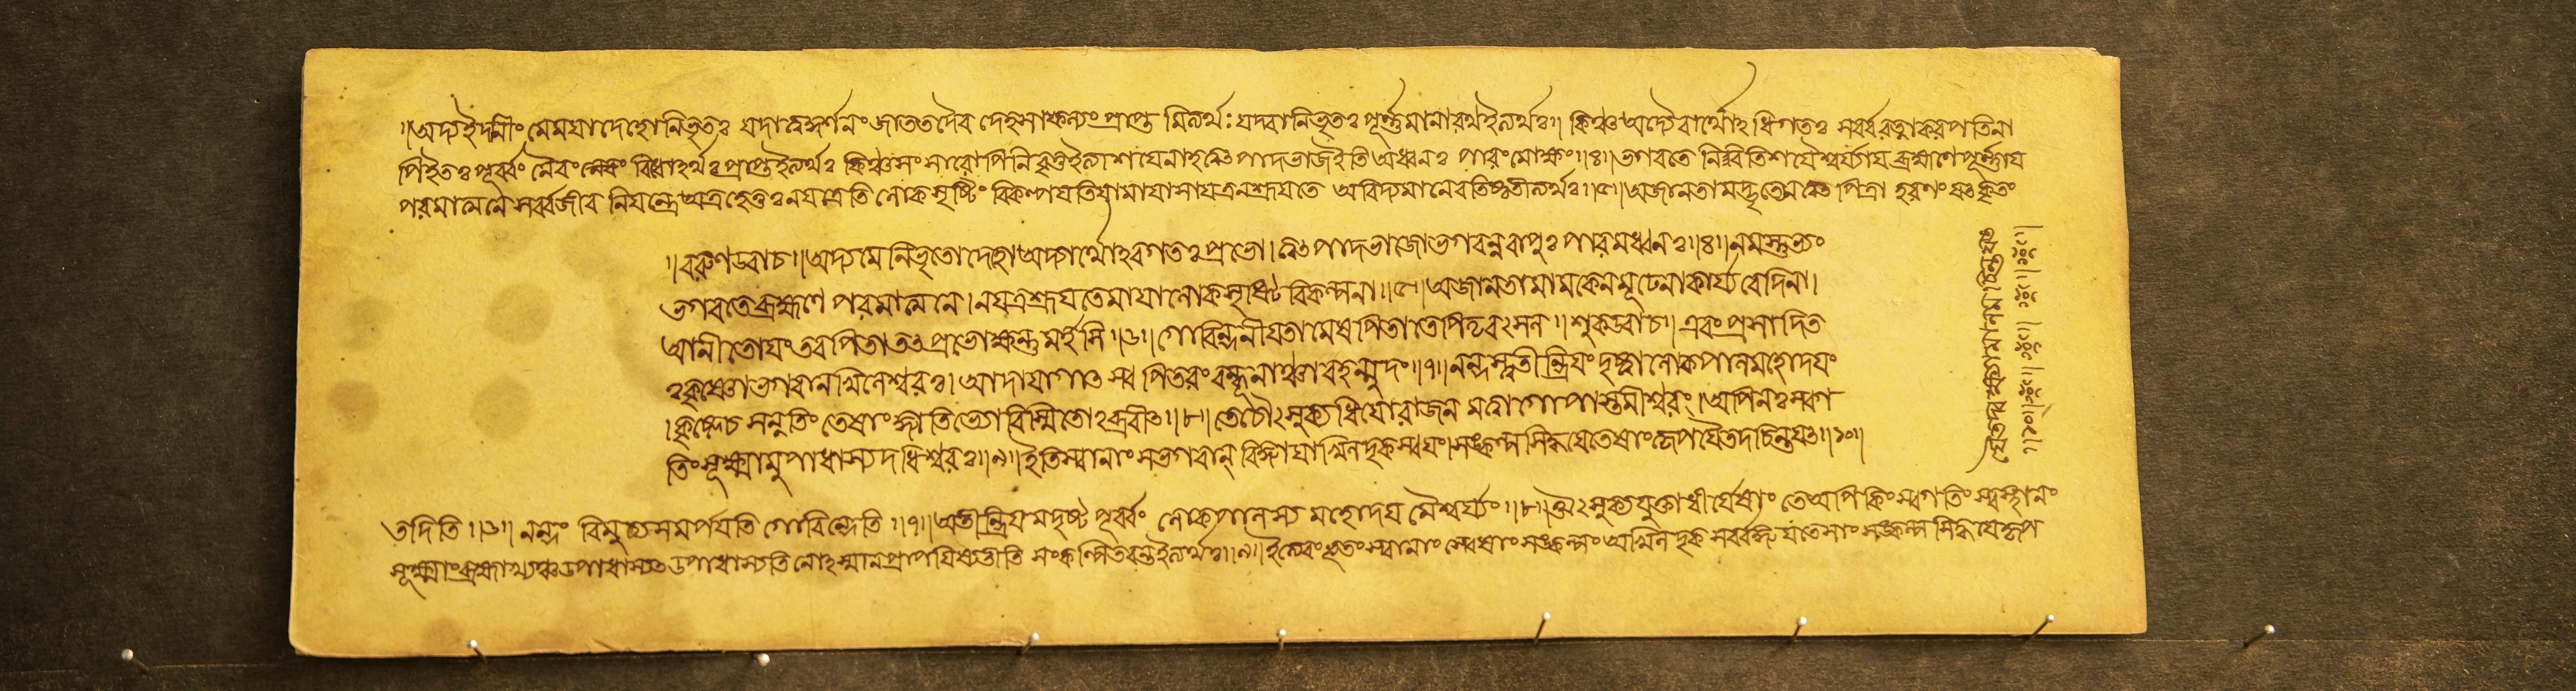 ॥অদ্যইদানীং মেময়াদেহোনিভৃতঃ যদাত্বদ্দর্শনংজাততদৈব দেহসাফল্যংপ্রাপ্ত মিত্যর্থঃ যদবানিভৃতঃ পূর্ণ্ণমানারথইত্যর্থঃ॥ কিঞ্চঅদ্যৈবার্থোঽধিগতঃ সর্ব্বরত্নাকরপতিনা
পিইতঃপূর্ব্বং নৈবং বিধোঽর্থঃপ্রাপ্তইত্যর্থঃ কিঞ্চসংসারোপিনিবৃত্তইত্যাশয়েনাহ পাদভাজইতি অধ্বনঃ পারংমোক্ষং॥৪॥ভগবতে নিরতিশয়ৈশ্বর্য্যায় ব্রহ্মণেপূর্ণ্ণায়
পরমাত্মনে সর্ব্বজীব নিয়ন্ত্রেঅত্রহেতুঃনযত্রেতি লোকসৃষ্টিং বিকল্পয়তিয়ামায়াসাযত্রনশ্রূয়তে অবিদ্যমানেবতিষ্ঠতীত্যর্থঃ॥৫॥অজানতামদ্ভৃত্যেন পিত্রা হরণং কৃতং
॥বরুণউবাচ॥অদ্যমে নিভৃতোদেহোঅদ্যার্থোঽধিগতঃপ্রভো।ত্বৎপাদভাজোভগবন্নবাপুঃ পারমধ্বনঃ॥৪॥নমস্তুভ্যং
ভগবতেব্রহ্মণে পরমাত্মনে।নযত্রশ্রূয়তেমায়ালোকসৃষ্টিবিকল্পনা॥৫॥অজানতামামকেনমূঢেনাকার্য্যবেদিনা।
আনীতোয়ংতবপিতাতৎপ্রভোক্ষন্তুমর্হসি॥৬॥গোবিন্দনীয়তামেষপিতাতেপিতৃবৎসল॥শুকউবাচ॥এবংপ্রসাদিত
ঃকৃষ্ণোভগবানীশ্বরেশ্বরঃ।আদায়াগাৎ স্ব পিতরংবন্ধূনাঞ্চাবহন্মুদং॥৭॥নন্দস্ত্বতীন্দ্রিয়ংদৃষ্ট্বালোকপালমহোদয়ং
।কৃষ্ণেচ সন্নতিং তেষাংজ্ঞাতিভ্যোবিস্মিতোঽব্রবীৎ॥৮॥তেচৌৎসুক্যধিয়োরাজন্ মত্বাগোপাস্তমীশ্বরং।অপিনঃস্বগ
তিংসূক্ষ্মামুপাধাস্যদধিশ্বরঃ॥৯॥ইতিস্বানাংসভগবান্ বিজ্ঞায়াখিলদৃকস্বয়ং।সঙ্কল্পসিদ্ধয়েতেষাংকৃপয়ৈতদচিন্তয়ৎ॥১০॥
তদিতি॥৬॥নন্দং বিমুচ্যসমর্পয়তি গোবিন্দেতি॥৭॥অতীন্দ্রিয়মদৃষ্ট পূর্ব্বং লোকপালস্য মহোদয় মৈশ্বর্য্যং॥৮॥ঔৎসুক্যযুক্তাধীর্যেষাং তেঅপি কিংস্বগতিং স্বস্থানং
সূক্ষ্মাংব্রহ্মাখ্যঞ্চউপাধাস্যৎউপাধাস্যতিনোঽস্মানপ্রাপয়িষ্যতীতি সংকল্পিতবন্তইত্যর্থঃ॥৯॥ইত্যেবংভূতংস্বানাং স্বেষাংসঙ্কল্পং অখিলদৃক সর্ব্বজ্ঞ তেসাংসঙ্কল্প সিদ্ধয়েকৃপ